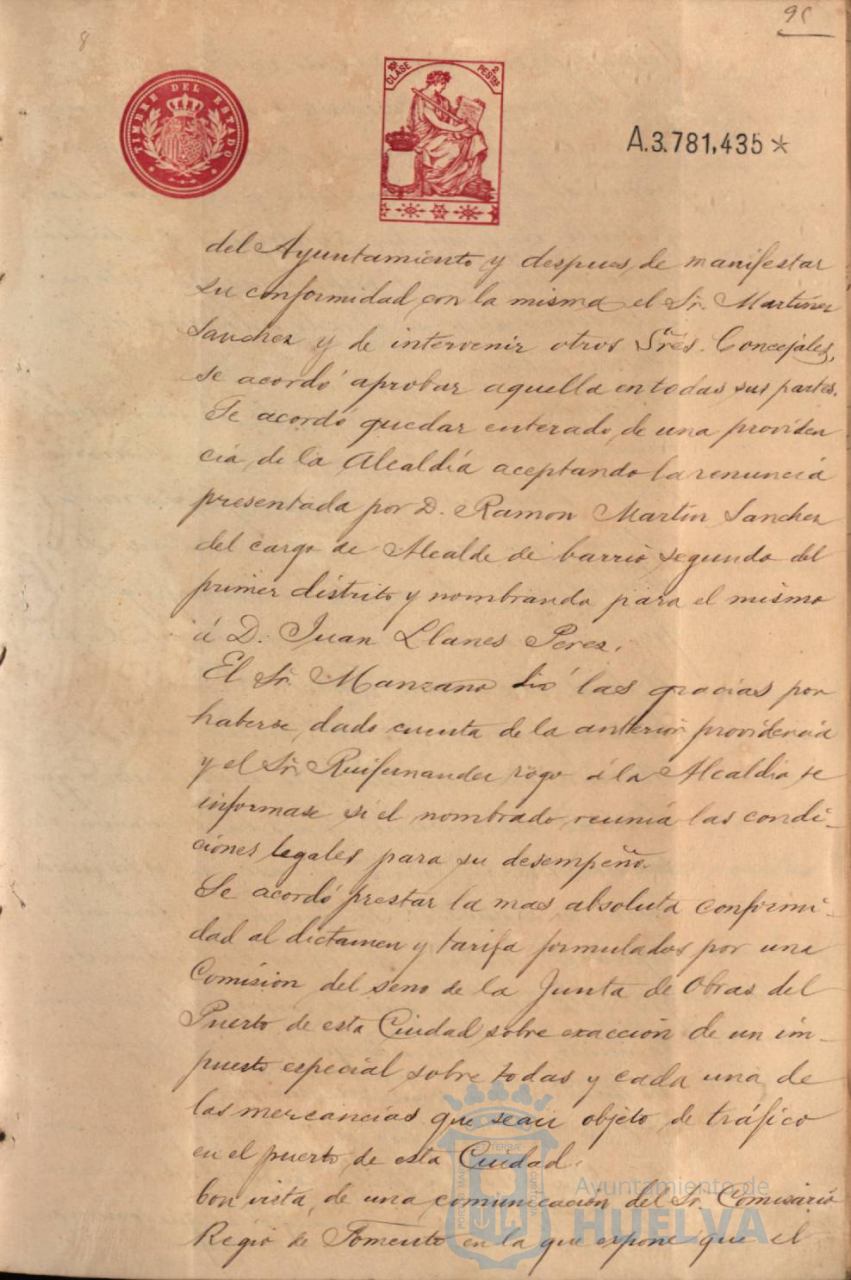 95
8
TIMBRE DEL ESTADO
10ª CLASE 2 PESTAS
A.3.781,435*
del Ayuntamiento y despues de manifestar
su conformidad con la misma el Sr. Martinez
Sanchez y de intervenir otros Sres. Concejales,
se acordó aprobar aquella en todas sus partes.
Se acordó quedar enterado de una providen
cia de la Alcaldía aceptando la renuncia
presentada por D. Ramon Martin Sanchez
del cargo de Alcalde de barrio segundo del
primer distrito y nombrando para el mismo
á D. Juan Llanes Perez.
El Sr. Manzano dió las gracias por
haberse dado cuenta de la anterior providencia
y el Sr. Ruifernandez rogo á la Alcaldia se
informase si el nombrado reunia las condi-
ciones legales para su desempeño.
Se acordó prestar la mas absoluta conformi-
dad al dictamen y tarifa formulados por una
Comision del seno de la Junta de Obras del
Puerto de esta Ciudad sobre exacción de un im-
puesto especial sobre todas y cada una de
las mercancias que sean objeto de tráfico
en el puerto de esta Ciudad.
Con vista de una comunicacion del Sr. Comisario
Regio de Fomento en la que expone que el
Ayuntamiento de
HUELVA